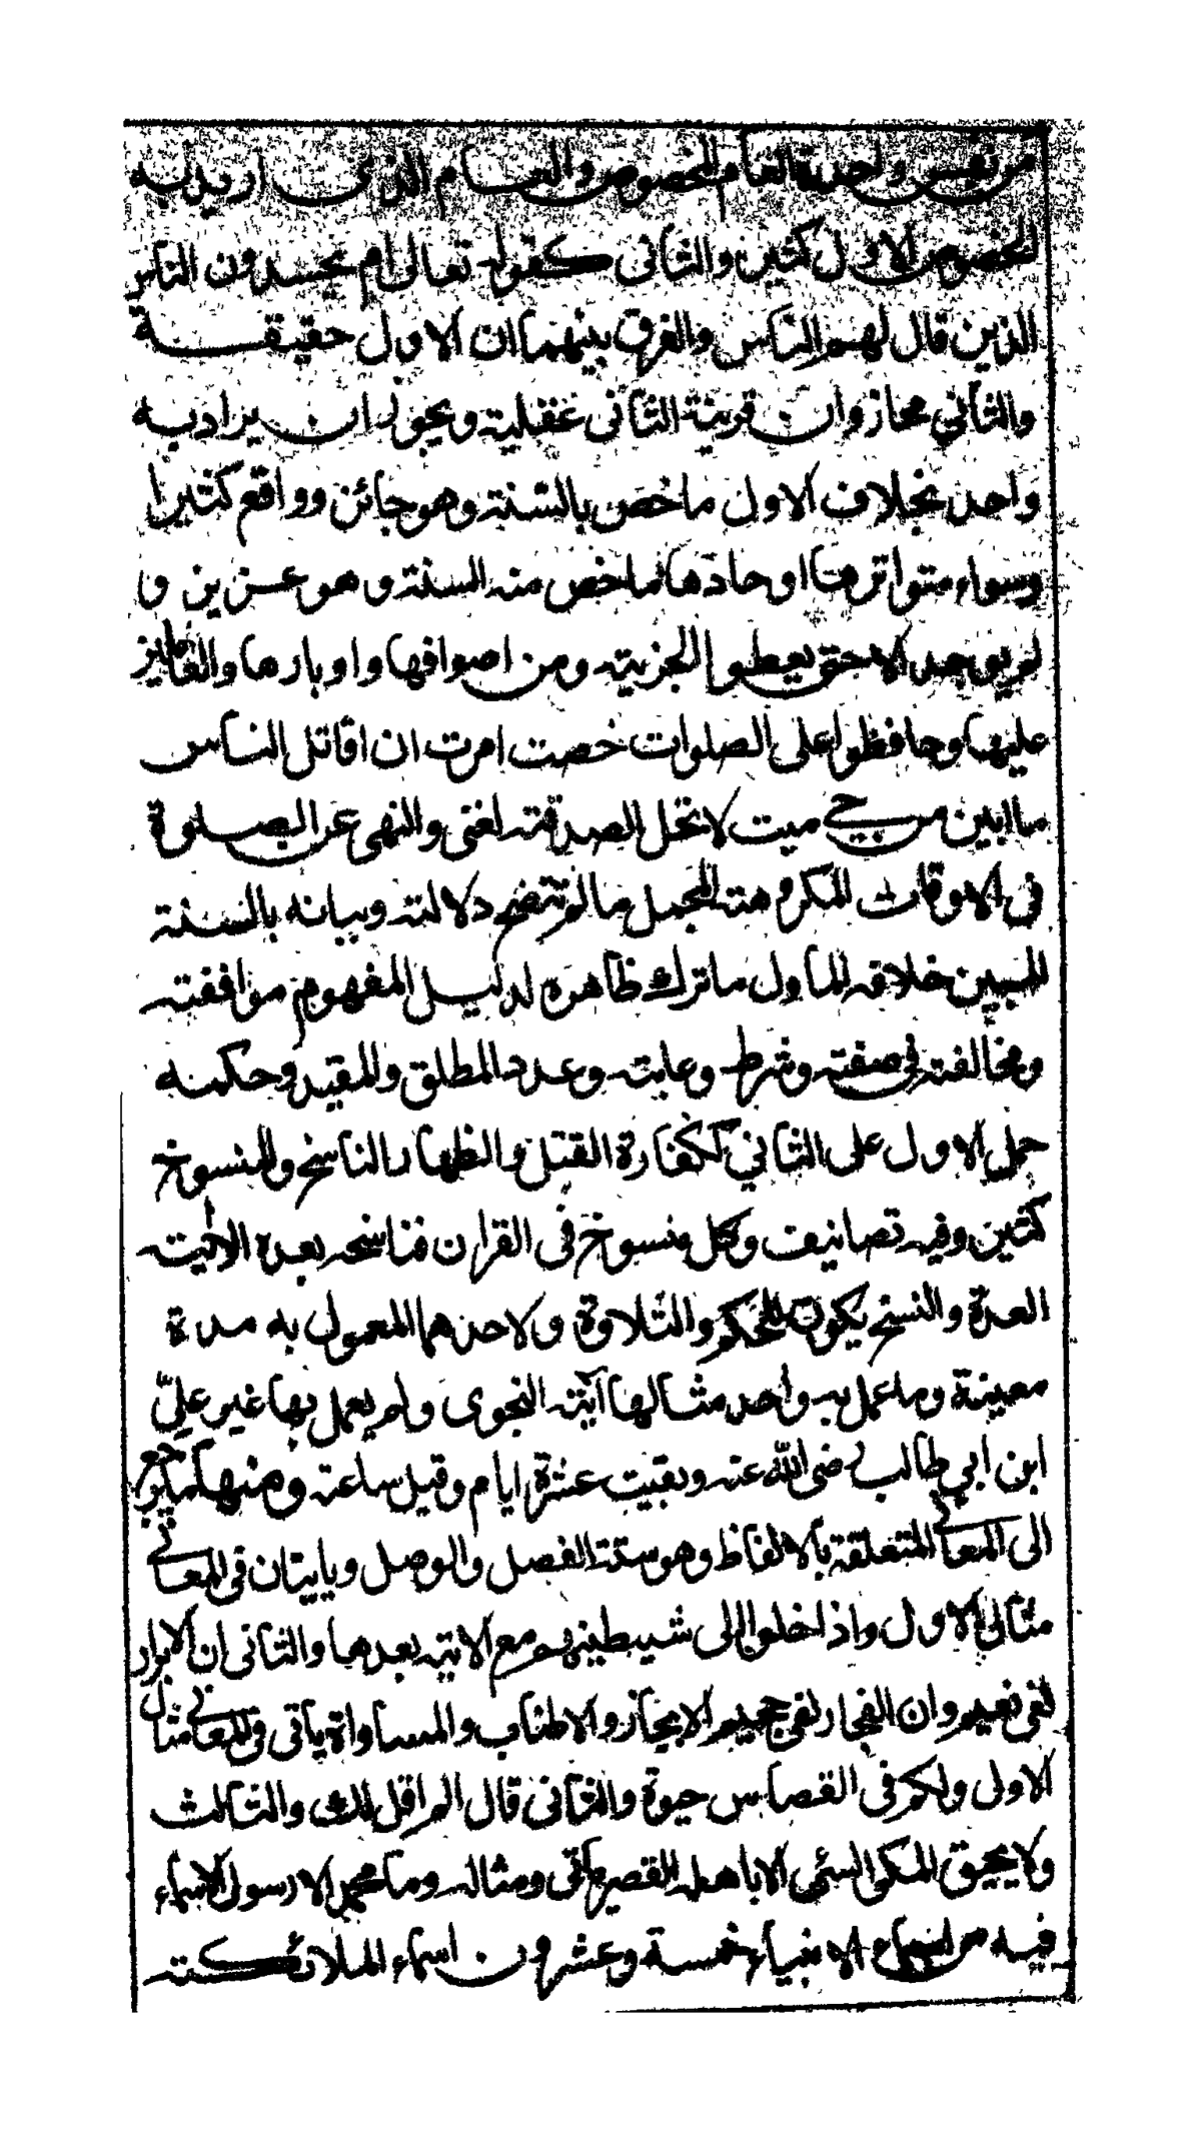 من نفس واحدة العام المخصوص والعام الذي اريد به
الخصوص الاول كثير والثاني كقوله تعالى ام يحسدون الناس
الذين قال لهم الناس والفرق بينهما ان الاول حقيقة
والثاني مجاز وان قرينة الثاني عقلية ويجوز ان يراد به
واحد بخلاف الاول ما خص بالسنة وهو جائز وواقع كثيرا
وسواء متواترها او حادها ما خص منه السنة وهو عزيز و
لم يوجد الا حتى يعطوا الجزية ومن اصوافها واوبارها والعاملين
عليها وحافظوا على الصلوات خصت امرت ان اقاتل الناس
ما ابين من حي ميت لا تحل الصدقة لغني والنهي عن الصلوة
في الاوقات المكروهة المجمل ما لم تتضح دلالته وبيانه بالسنة
المبين خلافه الماول ما ترك ظاهره لدليل المفهوم موافقته
ومخالفته في صفته وشرط وغاية وعدد المطلق والمقيد وحكمه
حمل الاول على الثاني ككفارة القتل والظهار الناسخ والمنسوخ
كثير وفيه تصانيف وكل منسوخ في القران فناسخه بعده الا اية
العدة والنسخ يكون للحكم والتلاوة ولاحدهما المعمول به مدة
معينة وما عمل به واحد مثالها آية النجوى ولم يعمل بها غير علي
ابن ابي طالب رضي الله عنه وبقيت عشرة ايام وقيل ساعة ومنها ما يرجع
الى المعاني المتعلقة بالالفاظ وهو ستة الفصل والوصل وياتيان في المعاني
مثال الاول واذا خلوا الى شيطينهم مع الاية بعدها والثاني ان الابرار
لفي نعيم وان الفجار لفي جحيم الايجاز والاطناب والمساواة ياتي في المعاني مثال
الاول ولكم في القصاص حيوة والثاني قال الم اقل لك والثالث
ولا يحيق المكر السئ الا باهله القصر ياتي ومثاله وما محمد الا رسول الاسماء
فيه من اسماء الانبياء خمسة وعشرون اسماء الملائكة